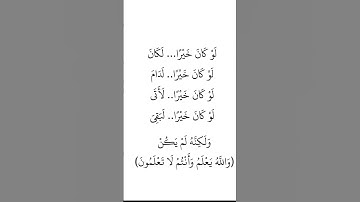 لَوْ كَانَ خَيْرًا... لَكَانَ
لَوْ كَانَ خَيْرًا.. لَدَامَ
لَوْ كَانَ خَيْرًا.. لَأَتَى
لَوْ كَانَ خَيْرًا.. لَبَقِىَ
وَلَكِنَّهُ لَمْ يَكُنْ
(وَاللَّهُ يَعْلَمُ وَأَنْتُمْ لَا تَعْلَمُونَ)